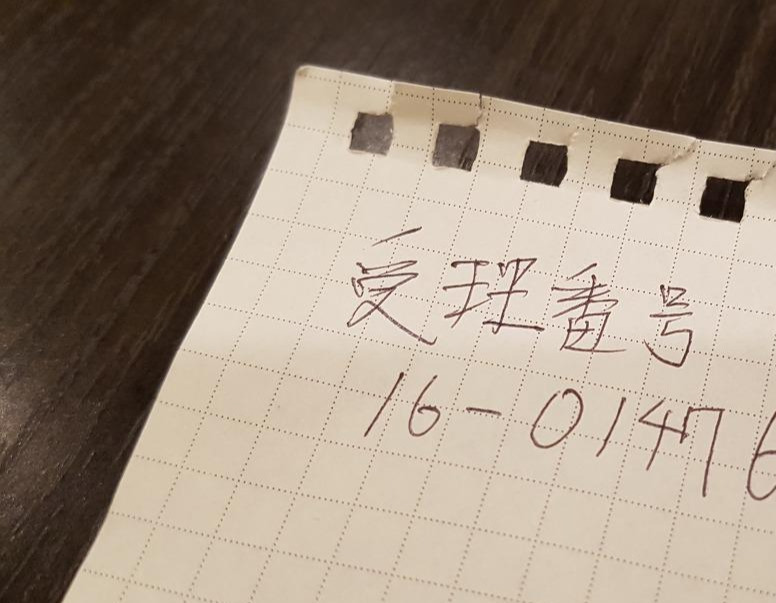 受理番号
16-01476